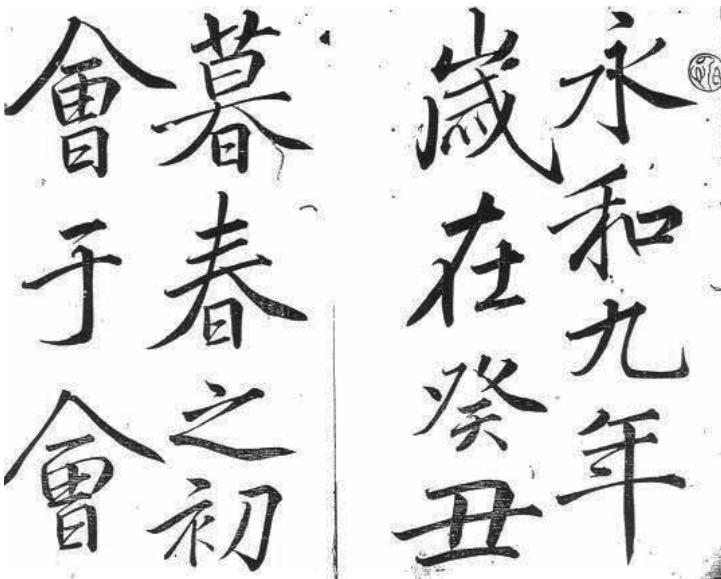 永和九年
歲在癸丑
暮春之初
會于會